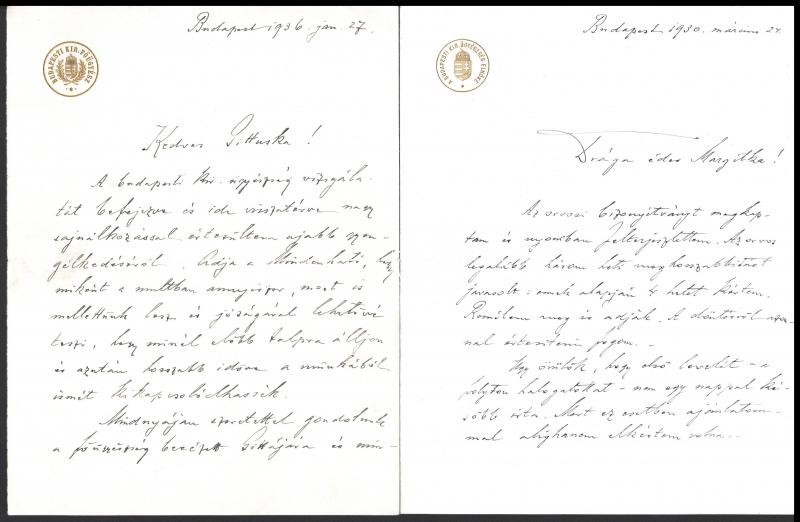 Budapest 1936 jan. 27.
BUDAPESTI KIR. FŐÜGYÉSZ
Kedves Gittuska!
A budapesti kir. ügyészség vizsgála-
tát befejezve és ide visszatérve nagy
sajnálkozással értesültem ujabb gyen-
gélkedéséről. Adja a Mindenható, hogy
miként a multban annyiszor, most is
mellettünk lesz és jóságával lehetővé
teszi, hogy minél előbb talpra álljon
és azután hosszabb időre a munkából
ismét kikapcsolódhassék.
Mindnyájan szeretettel gondolunk
a főügyészség Gittájára és min-
Budapest 1930. március 24.
A BUDAPESTI KIR. ÜGYÉSZSÉG ELNÖKE
Drága édes Margitka!
Az orvosi bizonyítványt megkap-
tam és nyomban felterjesztettem. Az orvos
legalább három heti meghosszabbítást
javasolt: ennek alapján 4 hetet kértem.
Remélem meg is adják. A döntésről azon-
nal értesíteni fogom.
Úgy örülök, hogy első levelét - a
folyton halogatottat - nem egy nappal ké-
sőbb írta. Mert ez esetben ajánlatom-
mal alighanem elkéstem volna.